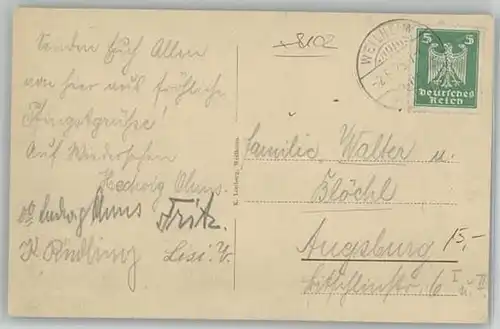 Senden Euch Allen
von hier aus fröhliche
Pfingstgrüße!
Auf Wiedersehen
Hedwig Ohms.
Ludwig Ohms Fritz.
K. Rindling Lisi. V.
8102
WEILHEIM
5 5
Deutsches
Reich
Familie Walter u.
Zlöchl
Augsburg 15,-
6 I u. II